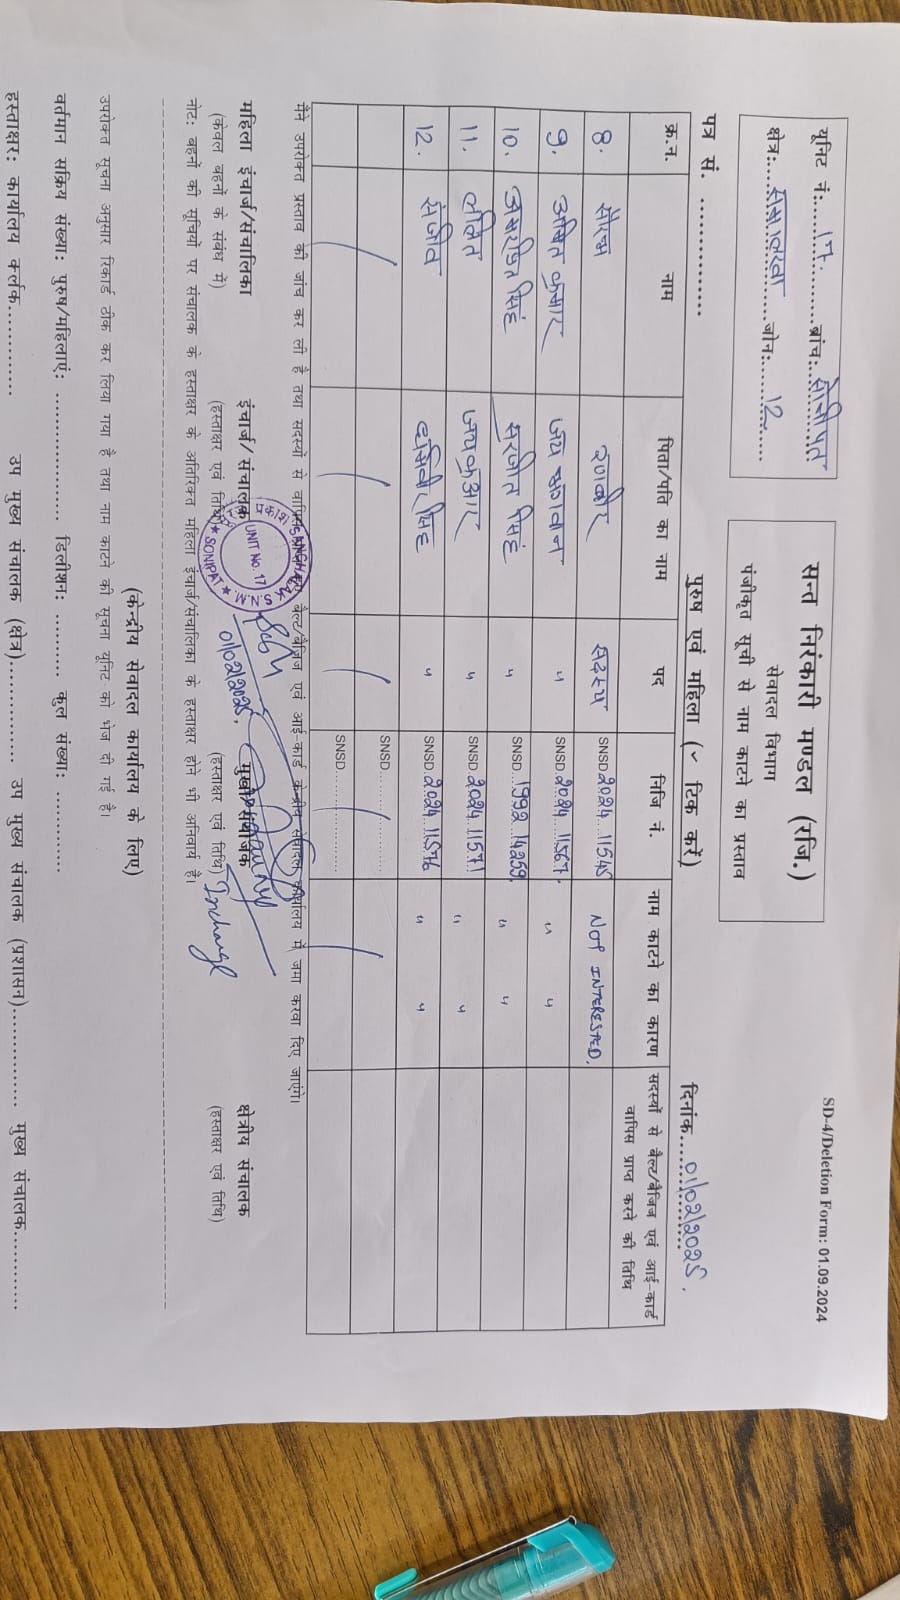 SD-4/Deletion Form: 01.09.2024
यूनिट नं:....17...........ब्रांच:...सोनीपत
क्षेत्र:....समालखा..........जोन:......12......
सन्त निरंकारी मण्डल (रजि.)
सेवादल विभाग
पंजीकृत सूची से नाम काटने का प्रस्ताव
पत्र सं. ................
पुरुष एवं महिला (✓ टिक करें)
दिनांक....01/02/2025.
क्र.न. नाम पिता/पति का नाम पद निजि नं. नाम काटने का कारण सदस्यों से बैल्ट/बैजिज एवं आई-कार्ड वापिस प्राप्त करने की तिथि
8. सौरभ रणबीर सदस्य SNSD.2024...11545 NOT INTERESTED.
9. अमित कुमार जय भगवान " SNSD.2024...11567. " "
10. अमरजित सिंह सुरजीत सिंह " SNSD...1992...14259. " "
11. ललित जयकुमार " SNSD.2024..11571 " "
12. संजीव " SNSD.2024..11576 " "
SNSD....................
SNSD....................
मैंने उपरोक्त प्रस्ताव की जांच कर ली है तथा सदस्यों से वापिस बैल्ट/बैजिज एवं आई-कार्ड केन्द्रीय सेवादल कार्यालय में जमा करवा दिए जाएंगे।
महिला इंचार्ज/संचालिका इंचार्ज/संचालक मुखी/संयोजक क्षेत्रीय संचालक
(केवल बहनों के संबंध में) (हस्ताक्षर एवं तिथि) (हस्ताक्षर एवं तिथि) (हस्ताक्षर एवं तिथि)
SANCHALAK
UNIT No. 17
S.N.M.
★ SONIPAT ★
प्रकाश
01/02/2025.
Incharge
नोट: बहनों की सूचियों पर संचालक के हस्ताक्षर के अतिरिक्त महिला इंचार्ज/संचालिका के हस्ताक्षर होने भी अनिवार्य है।
(केन्द्रीय सेवादल कार्यालय के लिए)
उपरोक्त सूचना अनुसार रिकार्ड ठीक कर लिया गया है तथा नाम काटने की सूचना यूनिट को भेज दी गई है।
वर्तमान सक्रिय संख्या: पुरुष/महिलाएं: .................... डिलीशन: .......... कुल संख्या: ............
हस्ताक्षर: कार्यालय कर्लक............. उप मुख्य संचालक (क्षेत्र).............. उप मुख्य संचालक (प्रशासन)............... मुख्य संचालक............